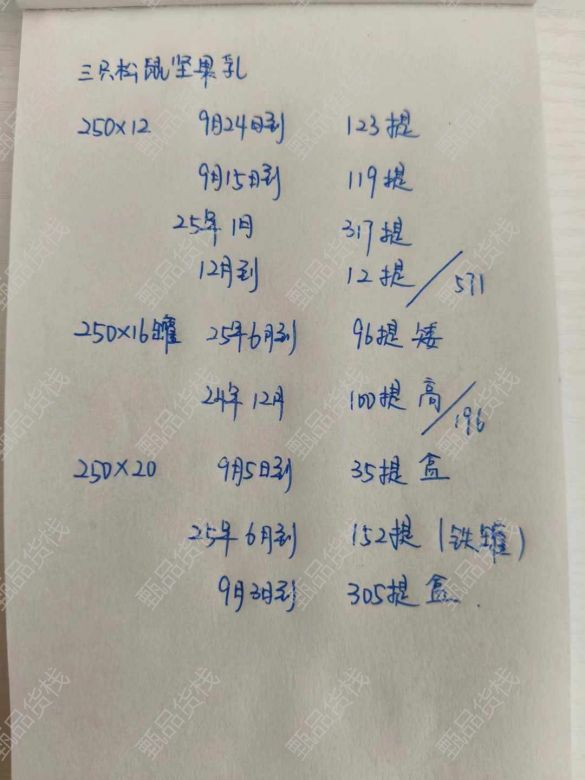 三只松鼠坚果乳
250×12 9月24日到 123提
9月15日到 119提
25年1月 317提
12月到 12提/571
250×16罐 25年6月到 96提 矮
24年12月 100提 高/196
250×20 9月5日到 35提 盒
25年6月到 152提(铁罐)
9月3日到 305提 盒.
甄品货栈